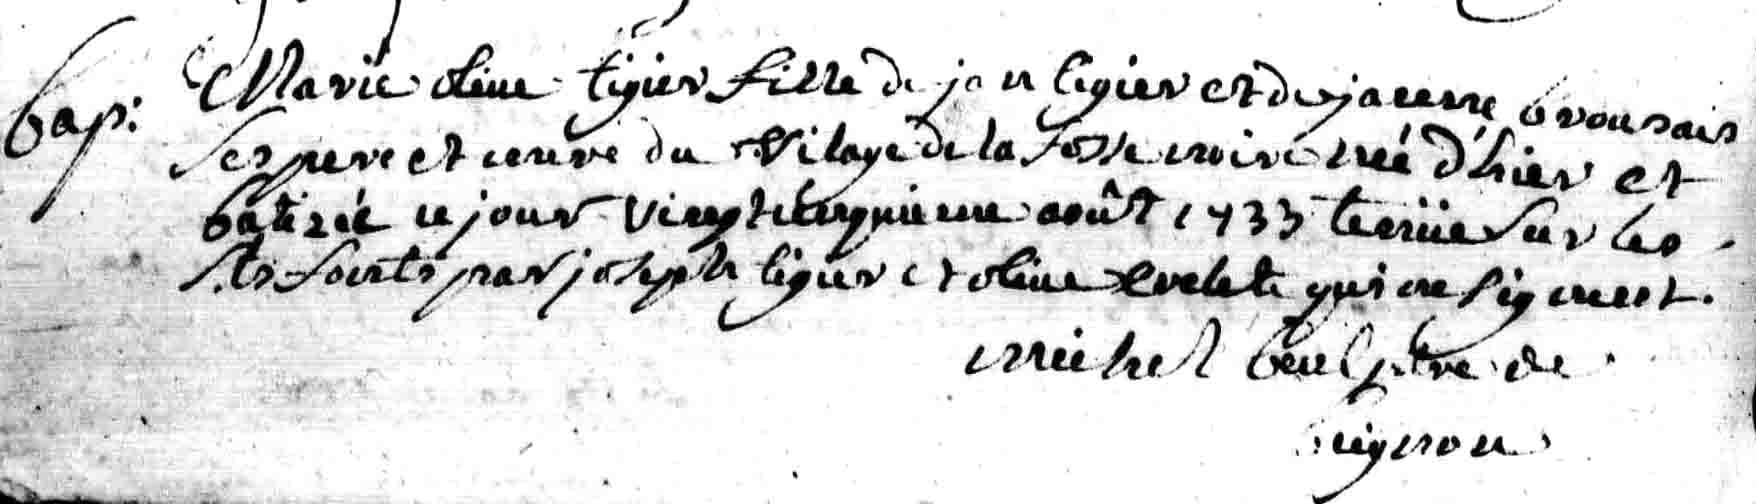 bap: Marie olive ligier fille de jan ligier et de jacenne brousais
ses pere et mere du vilage de la fosse noire née d'hier et
batizée ce jour vingt cinquieme août 1733 tenüe sur les
sts fonts par joseph ligier et olive qui ne signent.
michel ptre de